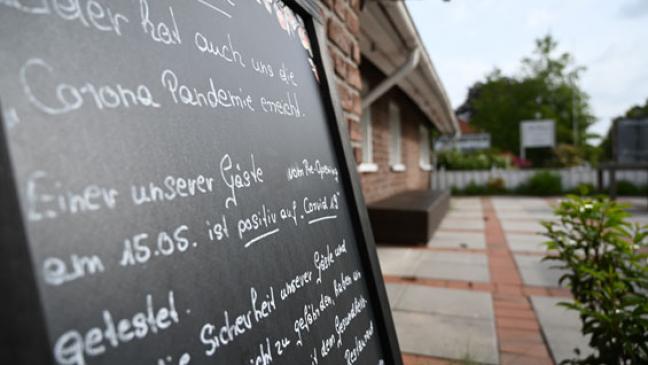 Leider hat auch uns die
Corona Pandemie erreicht.
Einer unserer Gäste vom Pre-Opening
am 15.05. ist positiv auf „Corvid 19"
getestet.
die Sicherheit unserer Gäste und
nicht zu gefährden, haben wir
mit dem Gesundheits-
Restaurant